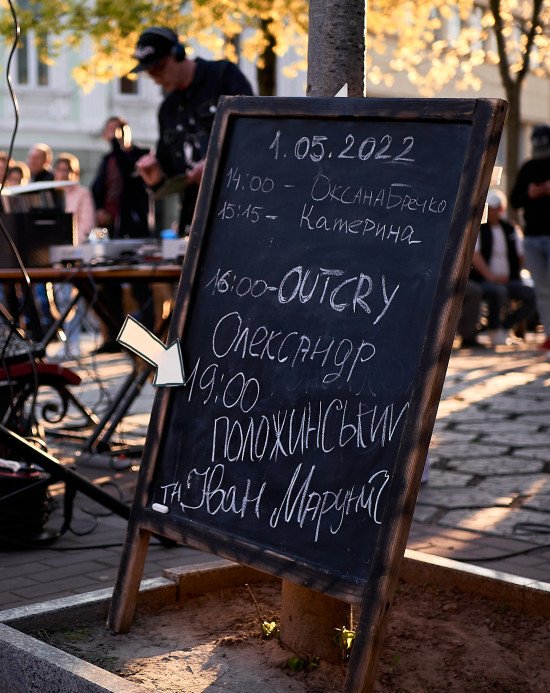 1.05.2022
14:00 - Оксана Бречко
15:15 - Катерина
16:00 - OUTCRY
Олександр
19:00
ПОЛОЖИНСЬКИЙ
та Іван Маруніч